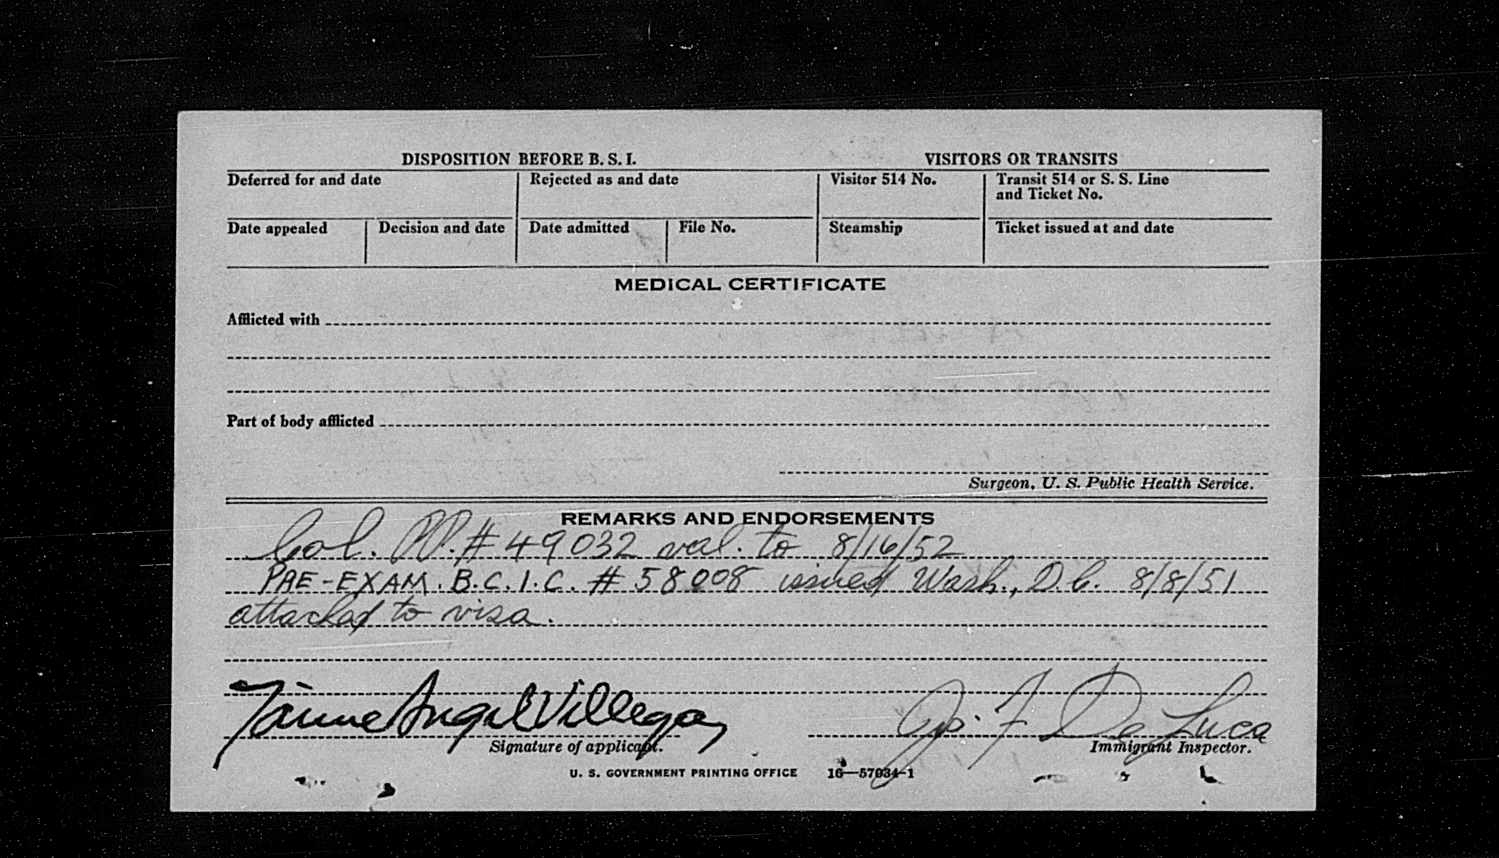 DISPOSITION BEFORE B. S. I. VISITORS OR TRANSITS
Deferred for and date Rejected as and date Visitor 514 No. Transit 514 or S. S. Line
and Ticket No.
Date appealed Decision and date Date admitted File No. Steamship Ticket issued at and date
MEDICAL CERTIFICATE
Afflicted with
Part of body afflicted
Surgeon, U. S. Public Health Service.
REMARKS AND ENDORSEMENTS
Col. PP. # 49032 val. to 8/16/52
PRE-EXAM. B.C.I.C. # 58008 issued Wash., D.C. 8/8/51
attached to visa.
Jaime Angel Villegas Jos. F. De Luca
Signature of applicant. Immigrant Inspector.
U. S. GOVERNMENT PRINTING OFFICE 16—57034-1